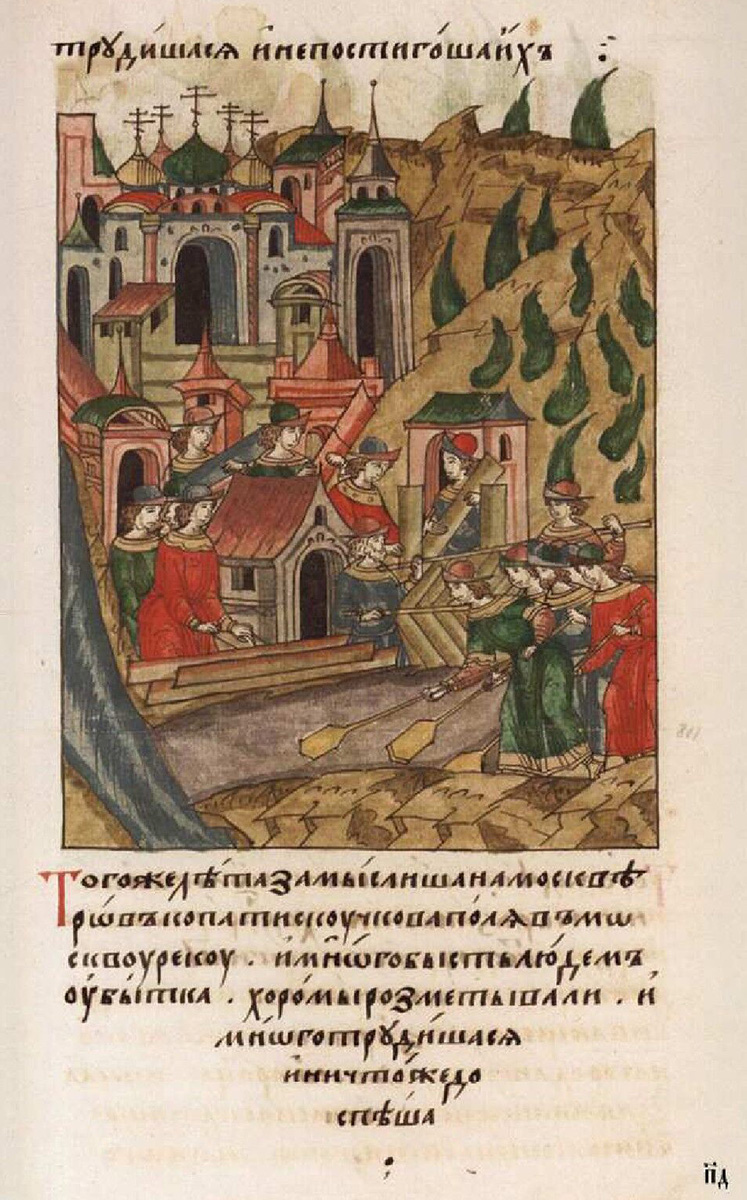 трꙋди́шася и҆непостиго́шаи҆́хъ
Тогожелѣ́тазамы́слишанамосквѣ̀
рѡ́въкопатискоучковапо́лявъмѡ
сквоурекоу . и҆мнѡ́гобы́стьлю́демъ
оу҆бы́тка . хоро́мырозме́тывали . и҆
мнѡ́готрꙋди́шася
и҆ничто́жедо
спѣ́ша
п҃д